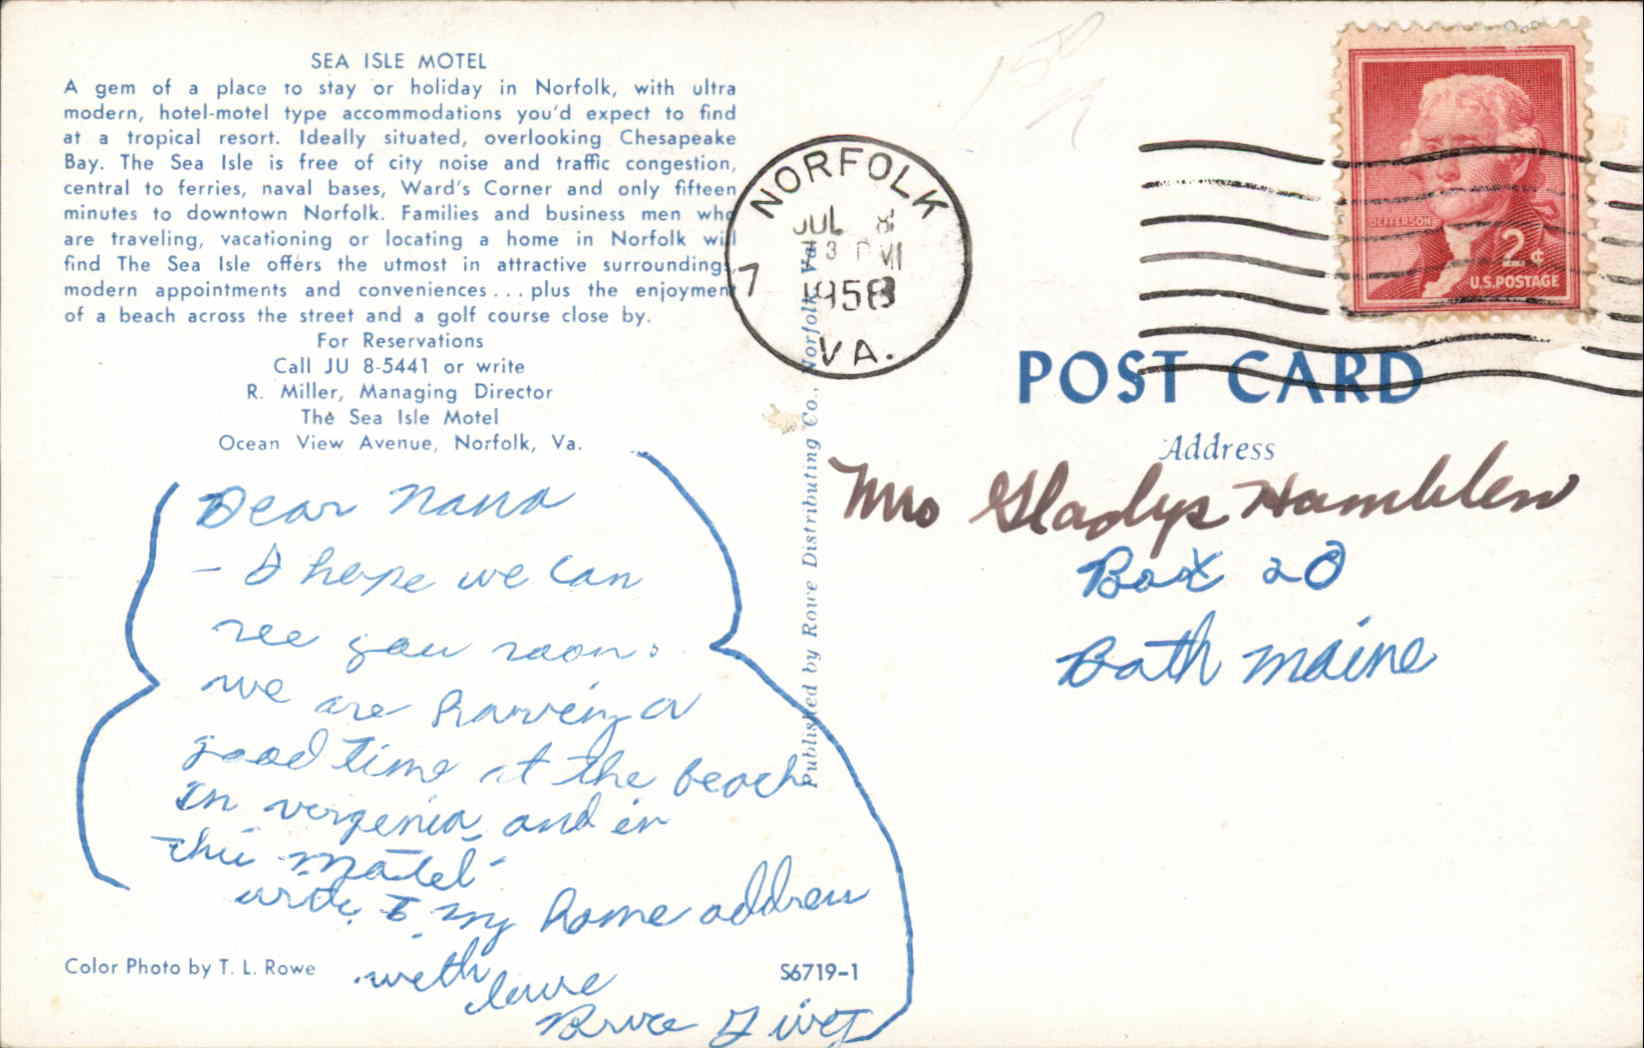 SEA ISLE MOTEL
A gem of a place to stay or holiday in Norfolk, with ultra
modern, hotel-motel type accommodations you'd expect to find
at a tropical resort. Ideally situated, overlooking Chesapeake
Bay. The Sea Isle is free of city noise and traffic congestion,
central to ferries, naval bases, Ward's Corner and only fifteen
minutes to downtown Norfolk. Families and business men who
are traveling, vacationing or locating a home in Norfolk will
find The Sea Isle offers the utmost in attractive surroundings
modern appointments and conveniences... plus the enjoyment
of a beach across the street and a golf course close by.
For Reservations
Call JU 8-5441 or write
R. Miller, Managing Director
The Sea Isle Motel
Ocean View Avenue, Norfolk, Va.
Dear Nana
- I hope we can
see you soon.
we are having a
good time at the beach
in vergenia and in
this Motel-
write to my home address
with
love
Bruce
Color Photo by T. L. Rowe
S6719-1
Published by Rowe Distributing Co., Norfolk, Va.
NORFOLK
JUL 8
PM
7
1958
VA.
JEFFERSON
2¢
U.S. POSTAGE
POST CARD
Address
Mrs Gladys Hamblen
Box 20
Bath Maine